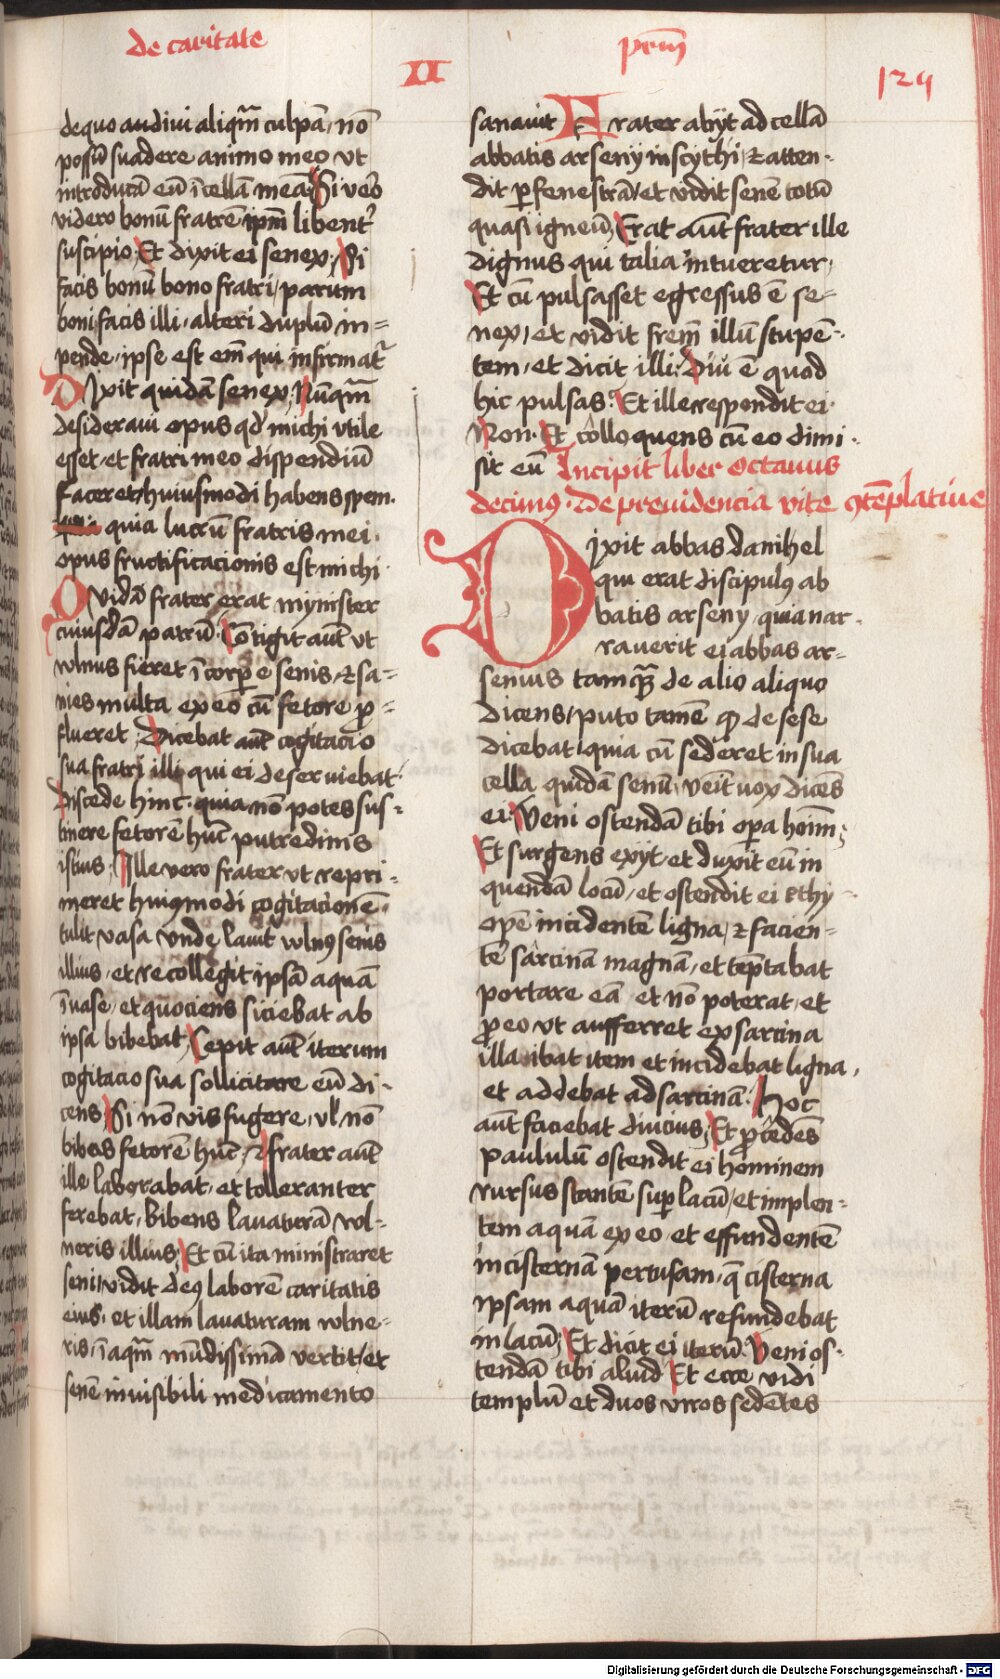 de caritate
II
prm̄
124
de quo audiui aliqm̄ culpā, nō
possū suadere animo meo vt
introducā eū ī cellā meā; Si vēo
videro bonū fratrē ipm̄ libent᷑
suscipio; Et dixit ei senex; Si
facis bonū bono fratri, parum
boni facis illi, alteri duplū in=
pende, ipse est em̄ qui infirmat᷑
Dixit quidā senex; Nūqm̄
desideraui opus qd̛ michi vtile
esset, et fratri meo dispendiū
faceret, huiusmodi habens spem.
quia lucrū fratris mei
opus fructificacionis est michi
Quidā frater erat mynister
cuiusdā patrū. Cōtigit aūt vt
vlnus fieret ī corpe senis, ⁊ sa-
nies multa ex eo cū fetore p-
flueret; Dicebat aūt cogitacio
sua fratri illi qui ei deseruiebat.
discede hinc. quia nō potes sus-
tinere fetorē hūc putredinis
istius; Ille vero frater vt repri-
meret huiꝯmodi cogitacionē.
tulit vasa vnde lauit vlnꝯ senis
illius, et recollegit ipsā aquā
ī vase, et quociens siciebat ab
ipsa bibebat; Cepit aūt iterum
cogitacio sua sollicitare eū di-
cens; Si nō vis fugere, vl̛ nō
bibas fetorē hūc; ⁊ frater aūt
ille laborabat, et tolleranter
ferebat, bibens lauaturā vol-
neris illius; Et cū ita ministraret
seni vidit deꝯ laborē caritatis
eius, et illam lauaturam vlne-
ris, ī aqm̄ mūdissimā vertit, et
senē inuisibili medicamento
sanauit Frater abijt ad cellā
abbatis arseny in scythi, ⁊ atten-
dit p fenestrā et vidit senē totū
quasi igneū; Erat aūt frater ille
dignus qui talia intueretur;
Et cū pulsasset egressus ē se-
nex, et vidit frem̄ illū stupē-
tem, et dicit illi; Diu ē quod
hic pulsas. Et ille respondit ei.
Non. Et colloquens cū eo dimi-
sit eū Incipit liber octauus
decimꝯ. de preuidencia vite ꝯtēplatiue
Dixit abbas danihel
qui erat discipulꝯ ab
batis arseny, quia nar-
rauerit ei abbas ar-
senius tamqꝫ de alio aliquo
dicens, puto tamē ꝙ de sese
dicebat, quia cū sederet in sua
cella quidā senū, venit uox dicēs
ei; Veni ostendā tibi opa hoīm;
Et surgens exijt, et duxit eū in
quendā locū, et ostendit ei ethy-
opē incidentē ligna, ⁊ facien-
tē sarcinam magnā, et tēptabat
portare eā et nō poterat, et
p eo vt aufferret ex sarcina
illa ibat item et incidebat ligna,
et addebat ad sarcinā. Hoc
aūt faciebat diucius; Et pcedēs
paululū ostendit ei hominem
rursus stantē sup lacū, et implen-
tem aquā ex eo, et effundentē
in cisternā pertusam, q̄ cisterna
ipsam aquā iterū refundebat
in lacū; Et dicit ei iterū. Veni os-
tendā tibi aliud Et ecce vidi
templū et duos viros sedētes
Digitalisierung gefördert durch die Deutsche Forschungsgemeinschaft - DFG